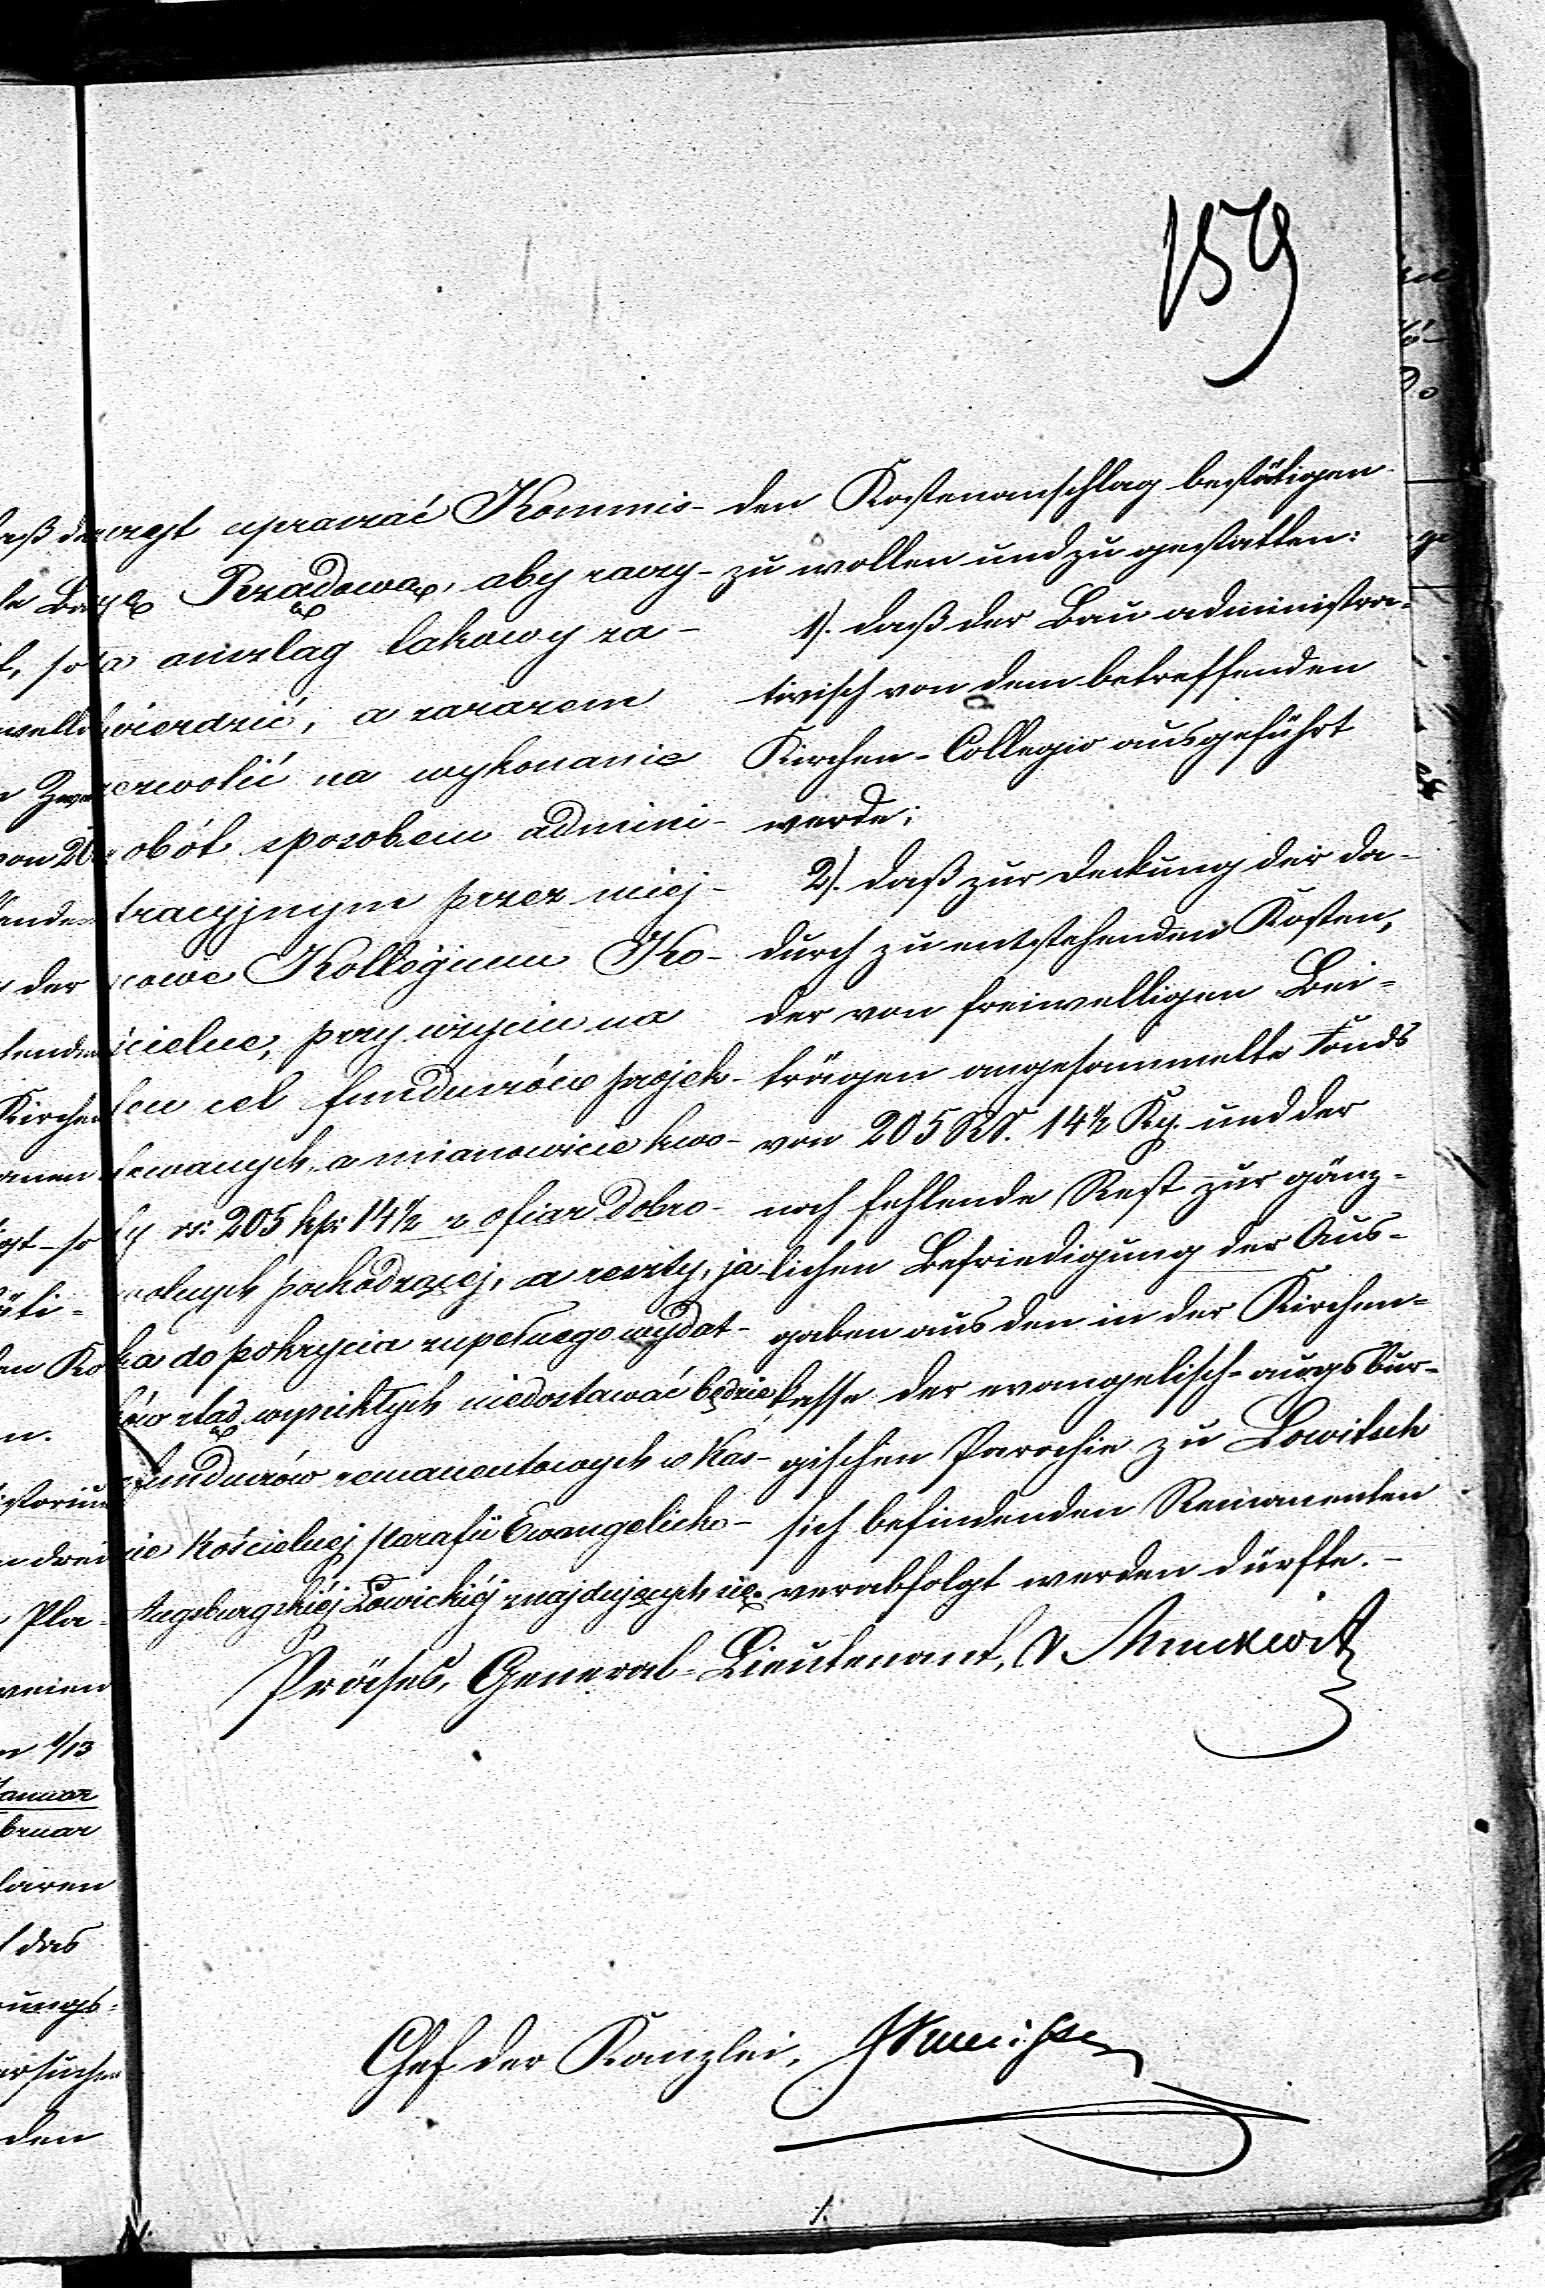 159
upraszać Kommis-
Rządową, aby raczy-
anszlag takowy za-
twierdzić, a zarazem
zezwolić na wykonanie
robót sposobem admini-
stracyjnym przez miej-
scowe Kollegium Ko-
ścielne, przy użyciu na
ten cel funduszów projek-
towanych, a mianowicie kwo-
ty rs: 205 kp: 14½ z ofiar dobro-
wolnych pochodzącej, a reszty, ja-
ka do pokrycia zupełnego wydat-
ków ztąd wynikłych niedostawać będzie
z funduszów remanentowych w Kas-
sie Kościelnej parafii Ewangelicko-
Augsburgskiéj Łowickiéj znajdujących się.
den Kostenanschlag bestätigen
zu wollen und zu gestatten:
1). daß der Bau administra-
tivisch von dem betreffenden
Kirchen-Collegio ausgeführt
werde;
2). daß zur Deckung der da-
durch zu entstehenden Kosten,
der von freiwilligen Bei-
trägen angesammelte Fonds
von 205 RS. 14½ Kp. und der
noch fehlende Rest zur gänz-
lichen Befriedigung der Aus-
gaben aus den in der Kirchen-
kasse der evangelisch-augsbur-
gischen Parochie zu Lowitsch
sich befindenden Remanenten
verabfolgt werden dürfte.-
Präses, General-Lieutenant,
Chef der Kanzlei,